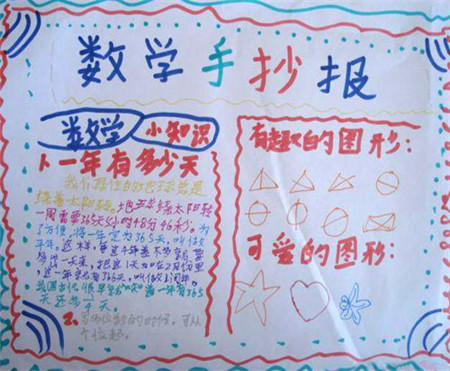 数学手抄报
数学
小知识
1、一年有多少天
我们居住的地球总是
绕着太阳转。地球绕太阳转
一周需要365天5小时48分46秒。为
了方便,将一年定为365天,叫做
平年,这样,每过4年差不多就要
多出一天来,把这1天加在2月份里,
这一年就有366天,叫做闰年。
我国古代很早就知道一年有365
天
天。
2、
的时候,可从
个位起。
有趣的图形:
可爱的图形: